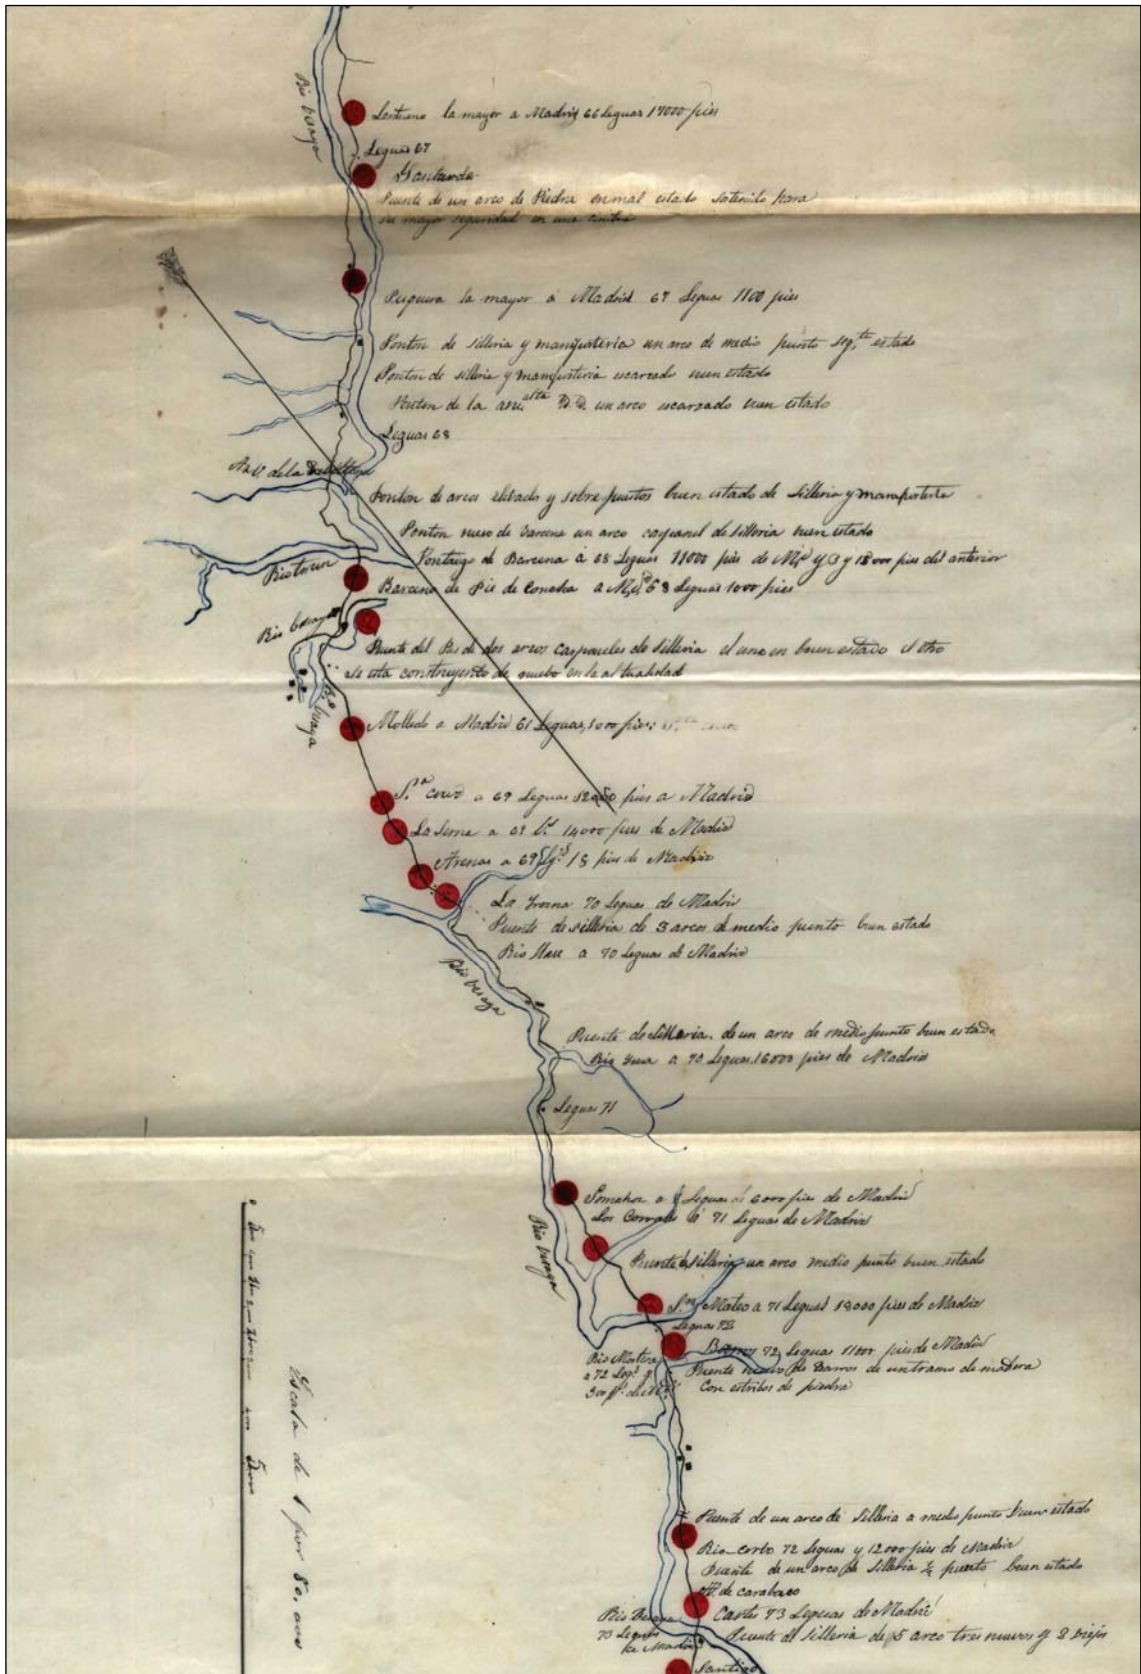 Rio besaya
Lantueno la mayor a Madrid 66 Leguas 17000 pies
Leguas 67
Santurde
Puente de un arco de Piedra en mal estado sotenido para
su mayor seguridad en una cimbra
Pesquera la mayor a Madrid 67 Leguas 1100 pies
Ponton de silleria y mamposteria un arco de medio punto estado
Ponton de silleria y mamposteria escarzado buen estado
Ponton de la un arco escarzado buen estado
Leguas 68
de la
Ponton de arcos elebado y sobre puestos buen estado de Silleria y mamposteria
Ponton nuevo de barcena un arco carpanel de silleria buen estado
Pontazgo de Barcena á 68 Leguas 11000 pies de y 3 y 18000 pies del anterior
Rio
Barceno de Pie de Concha a 68 Leguas 1000 pies
Rio besaya
Puente del de dos arcos carpaneles de silleria el uno en buen estado el otro
se esta construyendo de nuebo en la actualidad
Rio besaya
Molledo a Madrid 61 Leguas, 1000 pies
S.ta cruz a 69 Leguas pies a Madrid
La Serna a 69 L.s 14000 pies de Madrid
Arenas a 69 18 pies de Madrid
La 70 Leguas de Madrid
Puente de silleria de 3 arcos de medio punto buen estado
Rio a 70 Leguas de Madrid
Rio besaya
Puente de Silleria de un arco de medio punto buen estado
Rio a 70 Leguas 16000 pies de Madrid
Leguas 71
Somahoz a Leguas de 6000 pies de Madrid
Los Corrales á 71 Leguas de Madrid
Rio besaya
Puente de silleria un arco medio punto buen estado
S.n Mateo a 71 Leguas 18000 pies de Madrid
Leguas 72
Barros 72 Leguas 1100 pies de Madrid
Puente nuevo de Barros de un tramo de madera
Con estribos de piedra
Rio
a 72 Leg.s y
300 p.s de
Escala de 1 por 80,000
Puente de un arco de Silleria a medio punto buen estado
Rio-corbo 72 Leguas y 12000 pies de Madrid
Puente de un arco de Silleria ½ punto buen estado
de carabaco
Cartes 73 Leguas de Madrid
Rio Besaya
73 Leguas
de Madrid
Puente de silleria de 5 arco tres nuevos y 2 viejos
Santiago